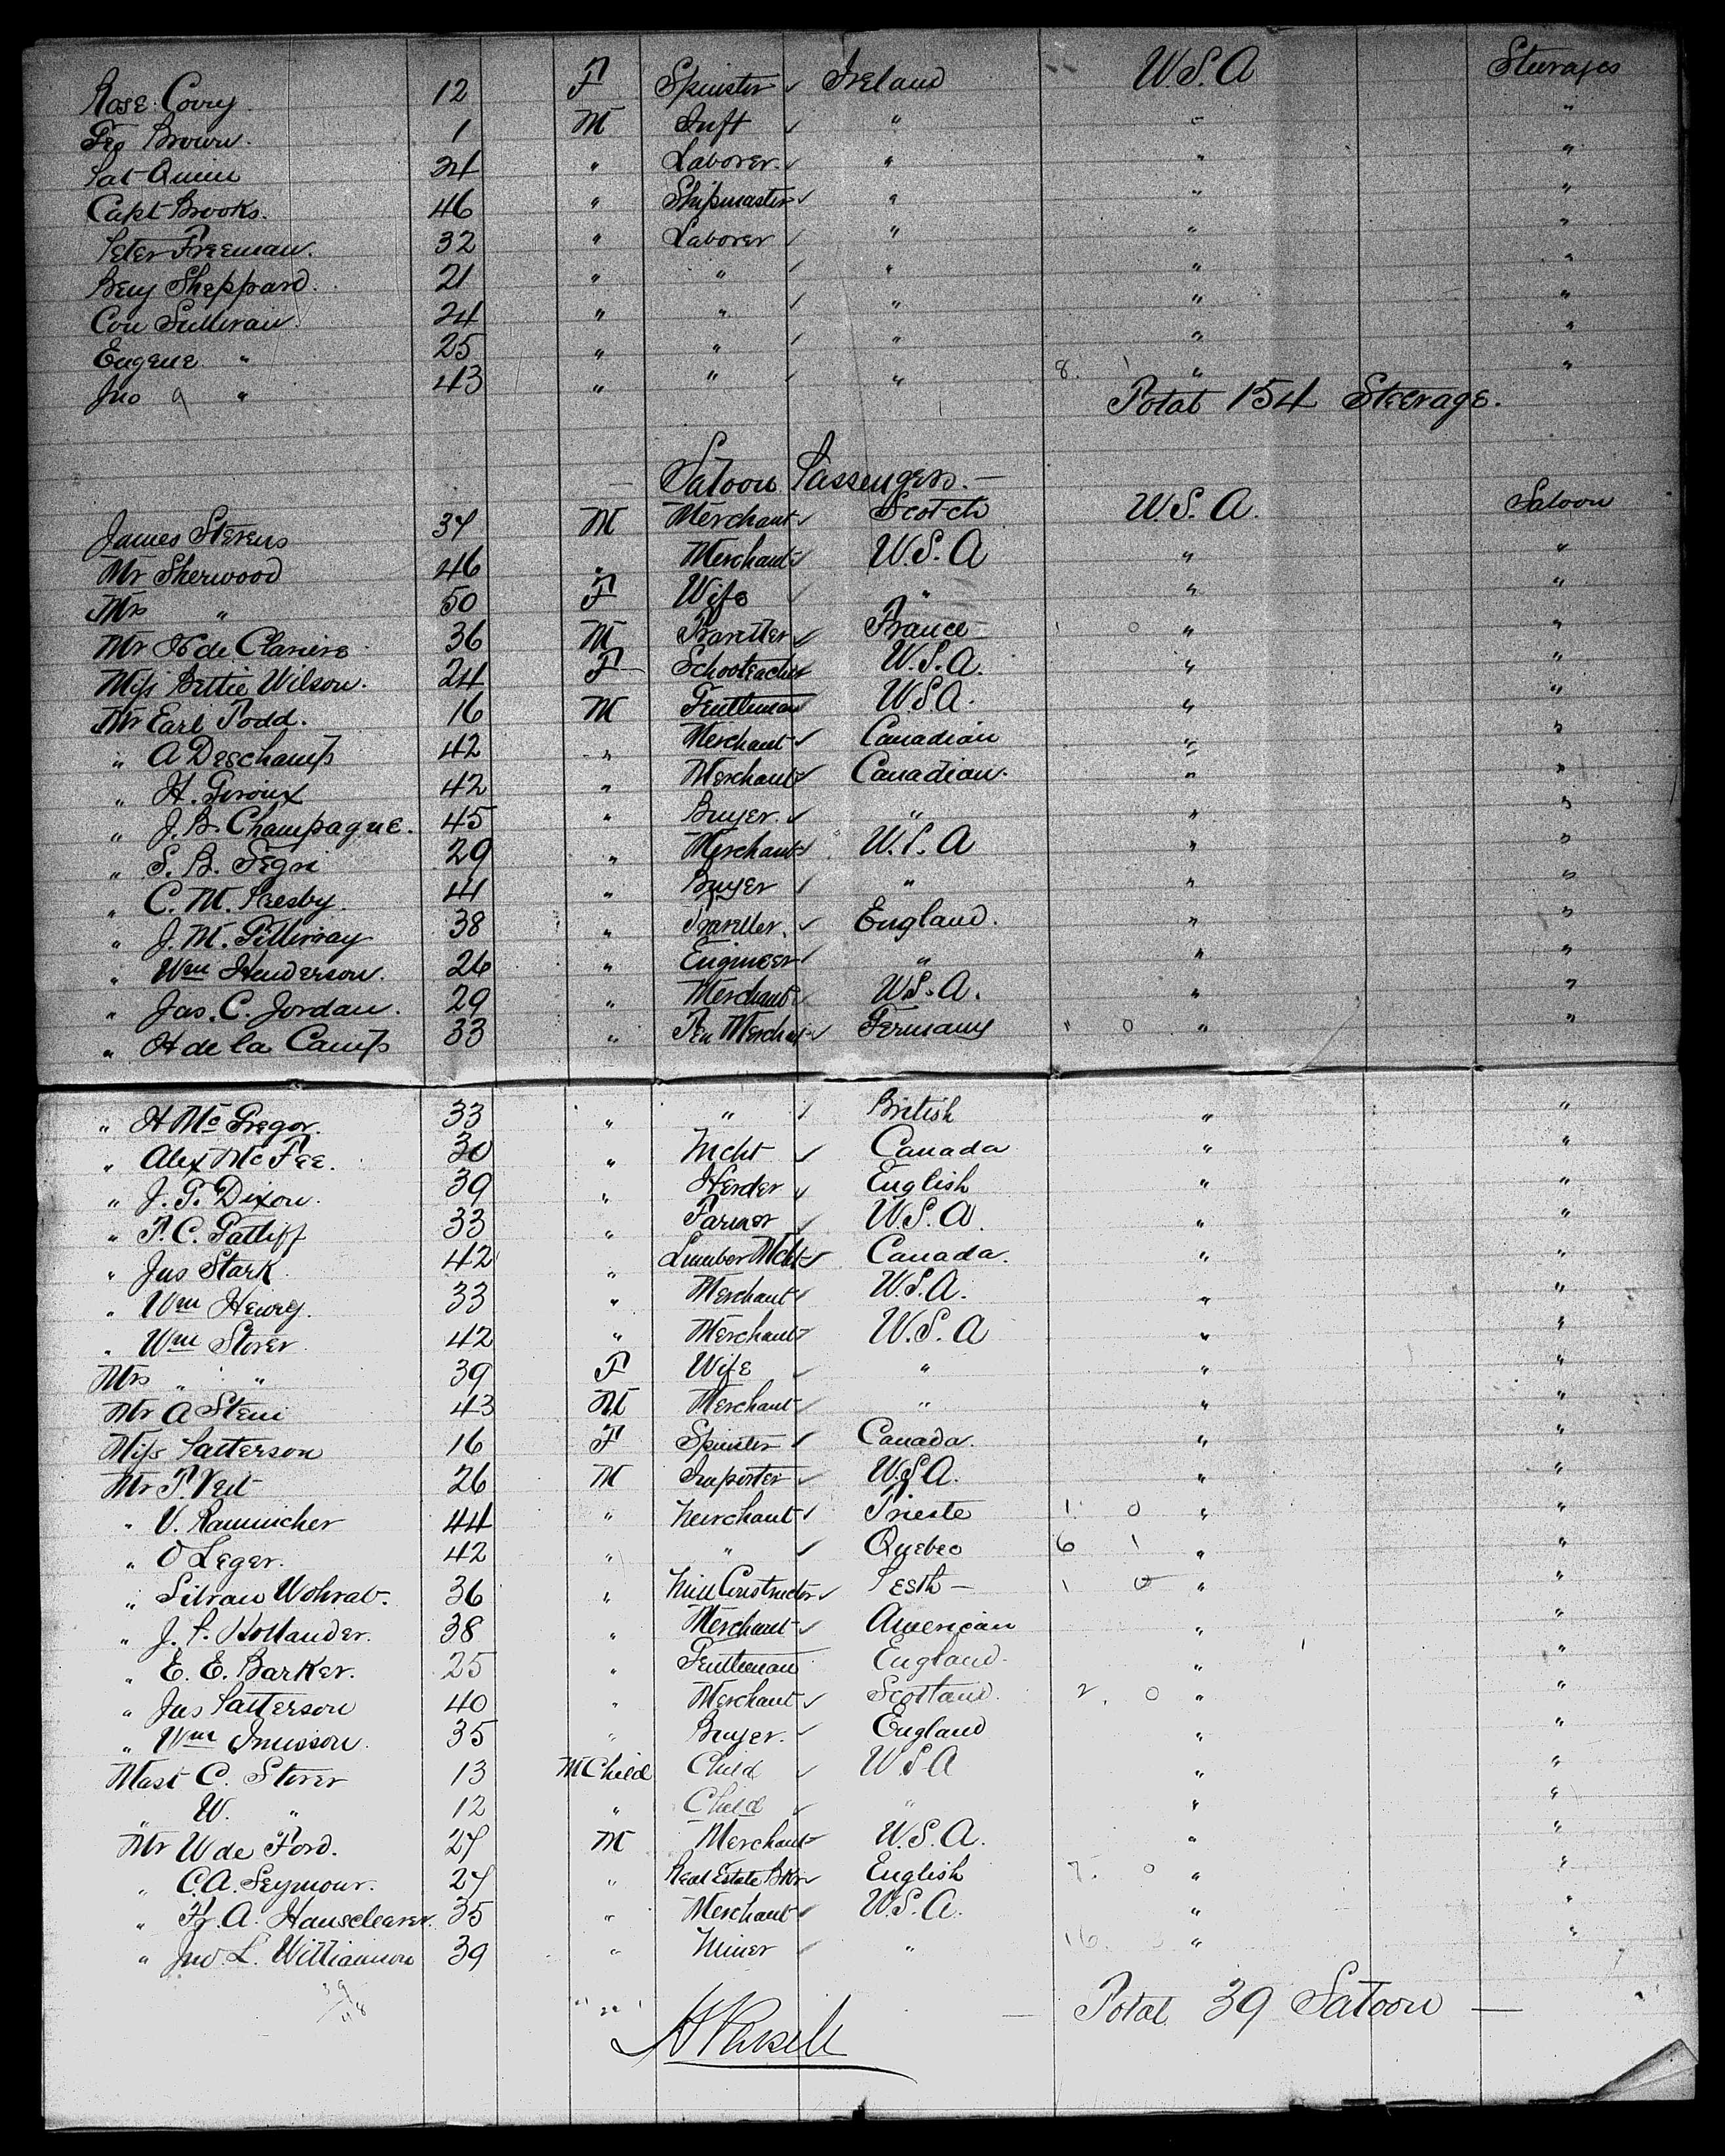 Rose Corry 12 F Spinster ✓ Ireland U.S.A Steerages
Geo Brown. 1 M Inft ✓ " " "
Pat Quinn 24 " Laborer. ✓ " " "
Capt Brooks. 46 " Shipmaster ✓ " " "
Peter Freeman. 32 " Laborer ✓ " " "
Benj Sheppard. 21 " " ✓ " " "
Con Sullivan 24 " " ✓ " " "
Eugene " 25 " " ✓ " " "
Jno " 43 " " ✓ " 8. 1 " "
9
Total 154 Steerage.
— Saloon Passengers. —
James Stevens 37 M Merchant ✓ Scotch U.S.A. Saloon
Mr Sherwood 46 " Merchant ✓ U.S.A " "
Mrs " 50 F Wife ✓ " " "
Mr H de Clariere 36 M Traveller ✓ France 1 0 " "
Miss Bettie Wilson. 24 F Schoolteacher U.S.A. " "
Mr Earl Todd. 16 M Gentleman U.S.A. " "
" A Deschamps 42 " Merchant ✓ Canadian " "
" H. Giroux 42 " Merchant ✓ Canadian. " "
" J. B. Champagne. 45 " Buyer ✓ " " "
" S. B. Segri 29 " Merchant ✓ U.S.A " "
" C. M. Presby. 41 " Buyer ✓ " " "
" J. M. Gillivray 38 " Traveller. ✓ England. " "
" Wm Henderson. 26 " Engineer ✓ " " "
" Jas. C. Jordan. 29 " Merchant ✓ U.S.A. " "
" H de la Camp 33 " Merchant ✓ Germany 1 0 " "
" H McGregor. 33 " " ✓ British " "
" Alex McFee. 30 " Mcht ✓ Canada " "
" J. T. Dixon. 39 " Herder ✓ English " "
" T. C. Gatliff 33 " Farmer ✓ U.S.A. " "
" Jas Stark 42 " Lumber Mcht ✓ Canada. " "
" Wm Henry. 33 " Merchant ✓ U.S.A. " "
" Wm Storer 42 " Merchant ✓ U.S.A " "
Mrs " " 39 F Wife ✓ " " "
Mr A Stein 43 M Merchant ✓ " " "
Miss Patterson 16 F Spinster ✓ Canada. " "
Mr T. Veit 26 M Importer ✓ U.S.A. " "
" V. 44 " Merchant ✓ Trieste 1 0 " "
" O Leger. 42 " " ✓ Quebec 6 1 " "
" Wohrab. 36 " Mill Constructor ✓ Pesth — 1 0 " "
" J. P. Hollander. 38 " Merchant ✓ American " "
" E. E. Barker. 25 " Gentleman England. " "
" Jas Patterson 40 " Merchant ✓ Scotland. 2. 0 " "
" Wm Imisson. 35 " Buyer. ✓ England " "
Mast C. Storer 13 M Child Child ✓ U.S.A " "
" W. " 12 " Child ✓ " " "
Mr W de Ford. 27 M Merchant ✓ U.S.A. " "
" C.A. Seymour. 27 " Real Estate Bkr ✓ English 7. 0 " "
" Fr. A. Hauscleaver. 35 " Merchant ✓ U.S.A. " "
" Jno. L. Williamson 39 " Miner ✓ " 16. 3 " "
— Total 39 Saloon —